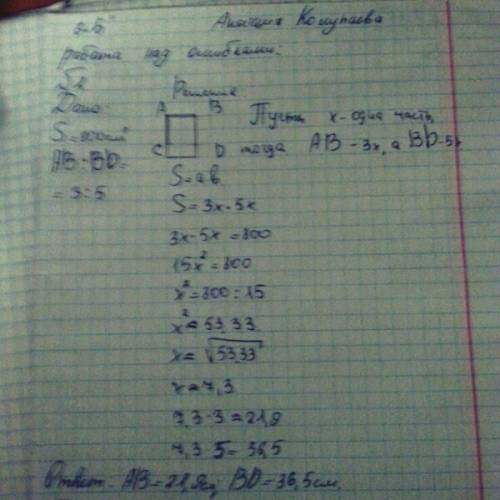 Анастасия Комупаева
работа над ошибками:
Дано: Решение
A B Пусть x - одна часть,
S = 800см²
C D тогда AB - 3x, а BD - 5x
AB : BD =
= 3 : 5
S = ab
S = 3x · 5x
3x · 5x = 800
15x² = 800
x² = 800 : 15
x² = 53,33
x = √53,33
x = 7,3
7,3 · 3 = 21,9
7,3 · 5 = 36,5
Ответ: AB = 21,9см, BD = 36,5см.